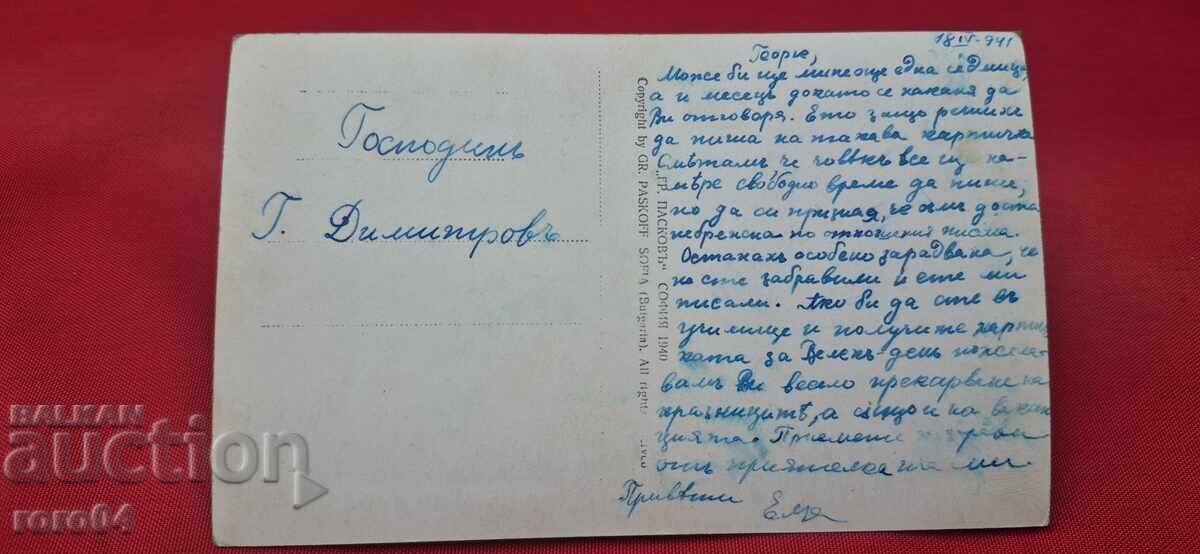 Господинъ
Г. Димитровъ
Copyright by GR. PASKOFF SOFIA (Bulgaria). All rights
"ГР. ПАСКОВЪ" СОФИЯ 1940
18 IV - 941
Георги,
Може би ще мине още една седмица,
а и месецъ докато се наканя да
Ви отговоря. Ето защо реших
да пиша на такава картичка
Смѣтамъ че човѣкъ все ще на-
мѣри свободно време да пише,
но да си призная, че съмъ доста
небрежна по отношения писма.
Останахъ особено зарадвана, че
не сте забравили и сте ми
писали. Ако би да сте въ
училище и получите картич
ката за Великъ-день пожела-
вамъ Ви весело прекарване на
празницитѣ, а също и на вакан
цията. Приемете поздрави
отъ приятелката ми.
Привѣти
BALKAN
auction
roro04